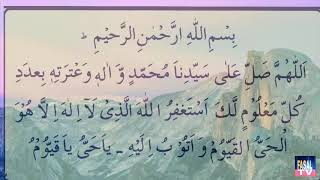 بِسْمِ اللّٰهِ ارَّحْمٰنِ الرَّحِيْمِ ؕ
اَللّٰهُمَّ صَلِّ عَلٰى سَيِّدِنَا مُحَمَّدٍ وَّ اٰلِهٖ وَعِتْرَتِهٖ بِعَدَدِ
كُلِّ مَعْلُوْمٍ لَّكَ اَسْتَغْفِرُ اللّٰهَ الَّذِىْ لَآ اِلٰهَ اِلَّا هُوَ
الْحَىُّ الْقَيُّوْمُ وَ اَتُوْبُ اِلَيْهِ ۔ يَاحَىُّ يَا قَيُّوْمُ
FASAL
TV